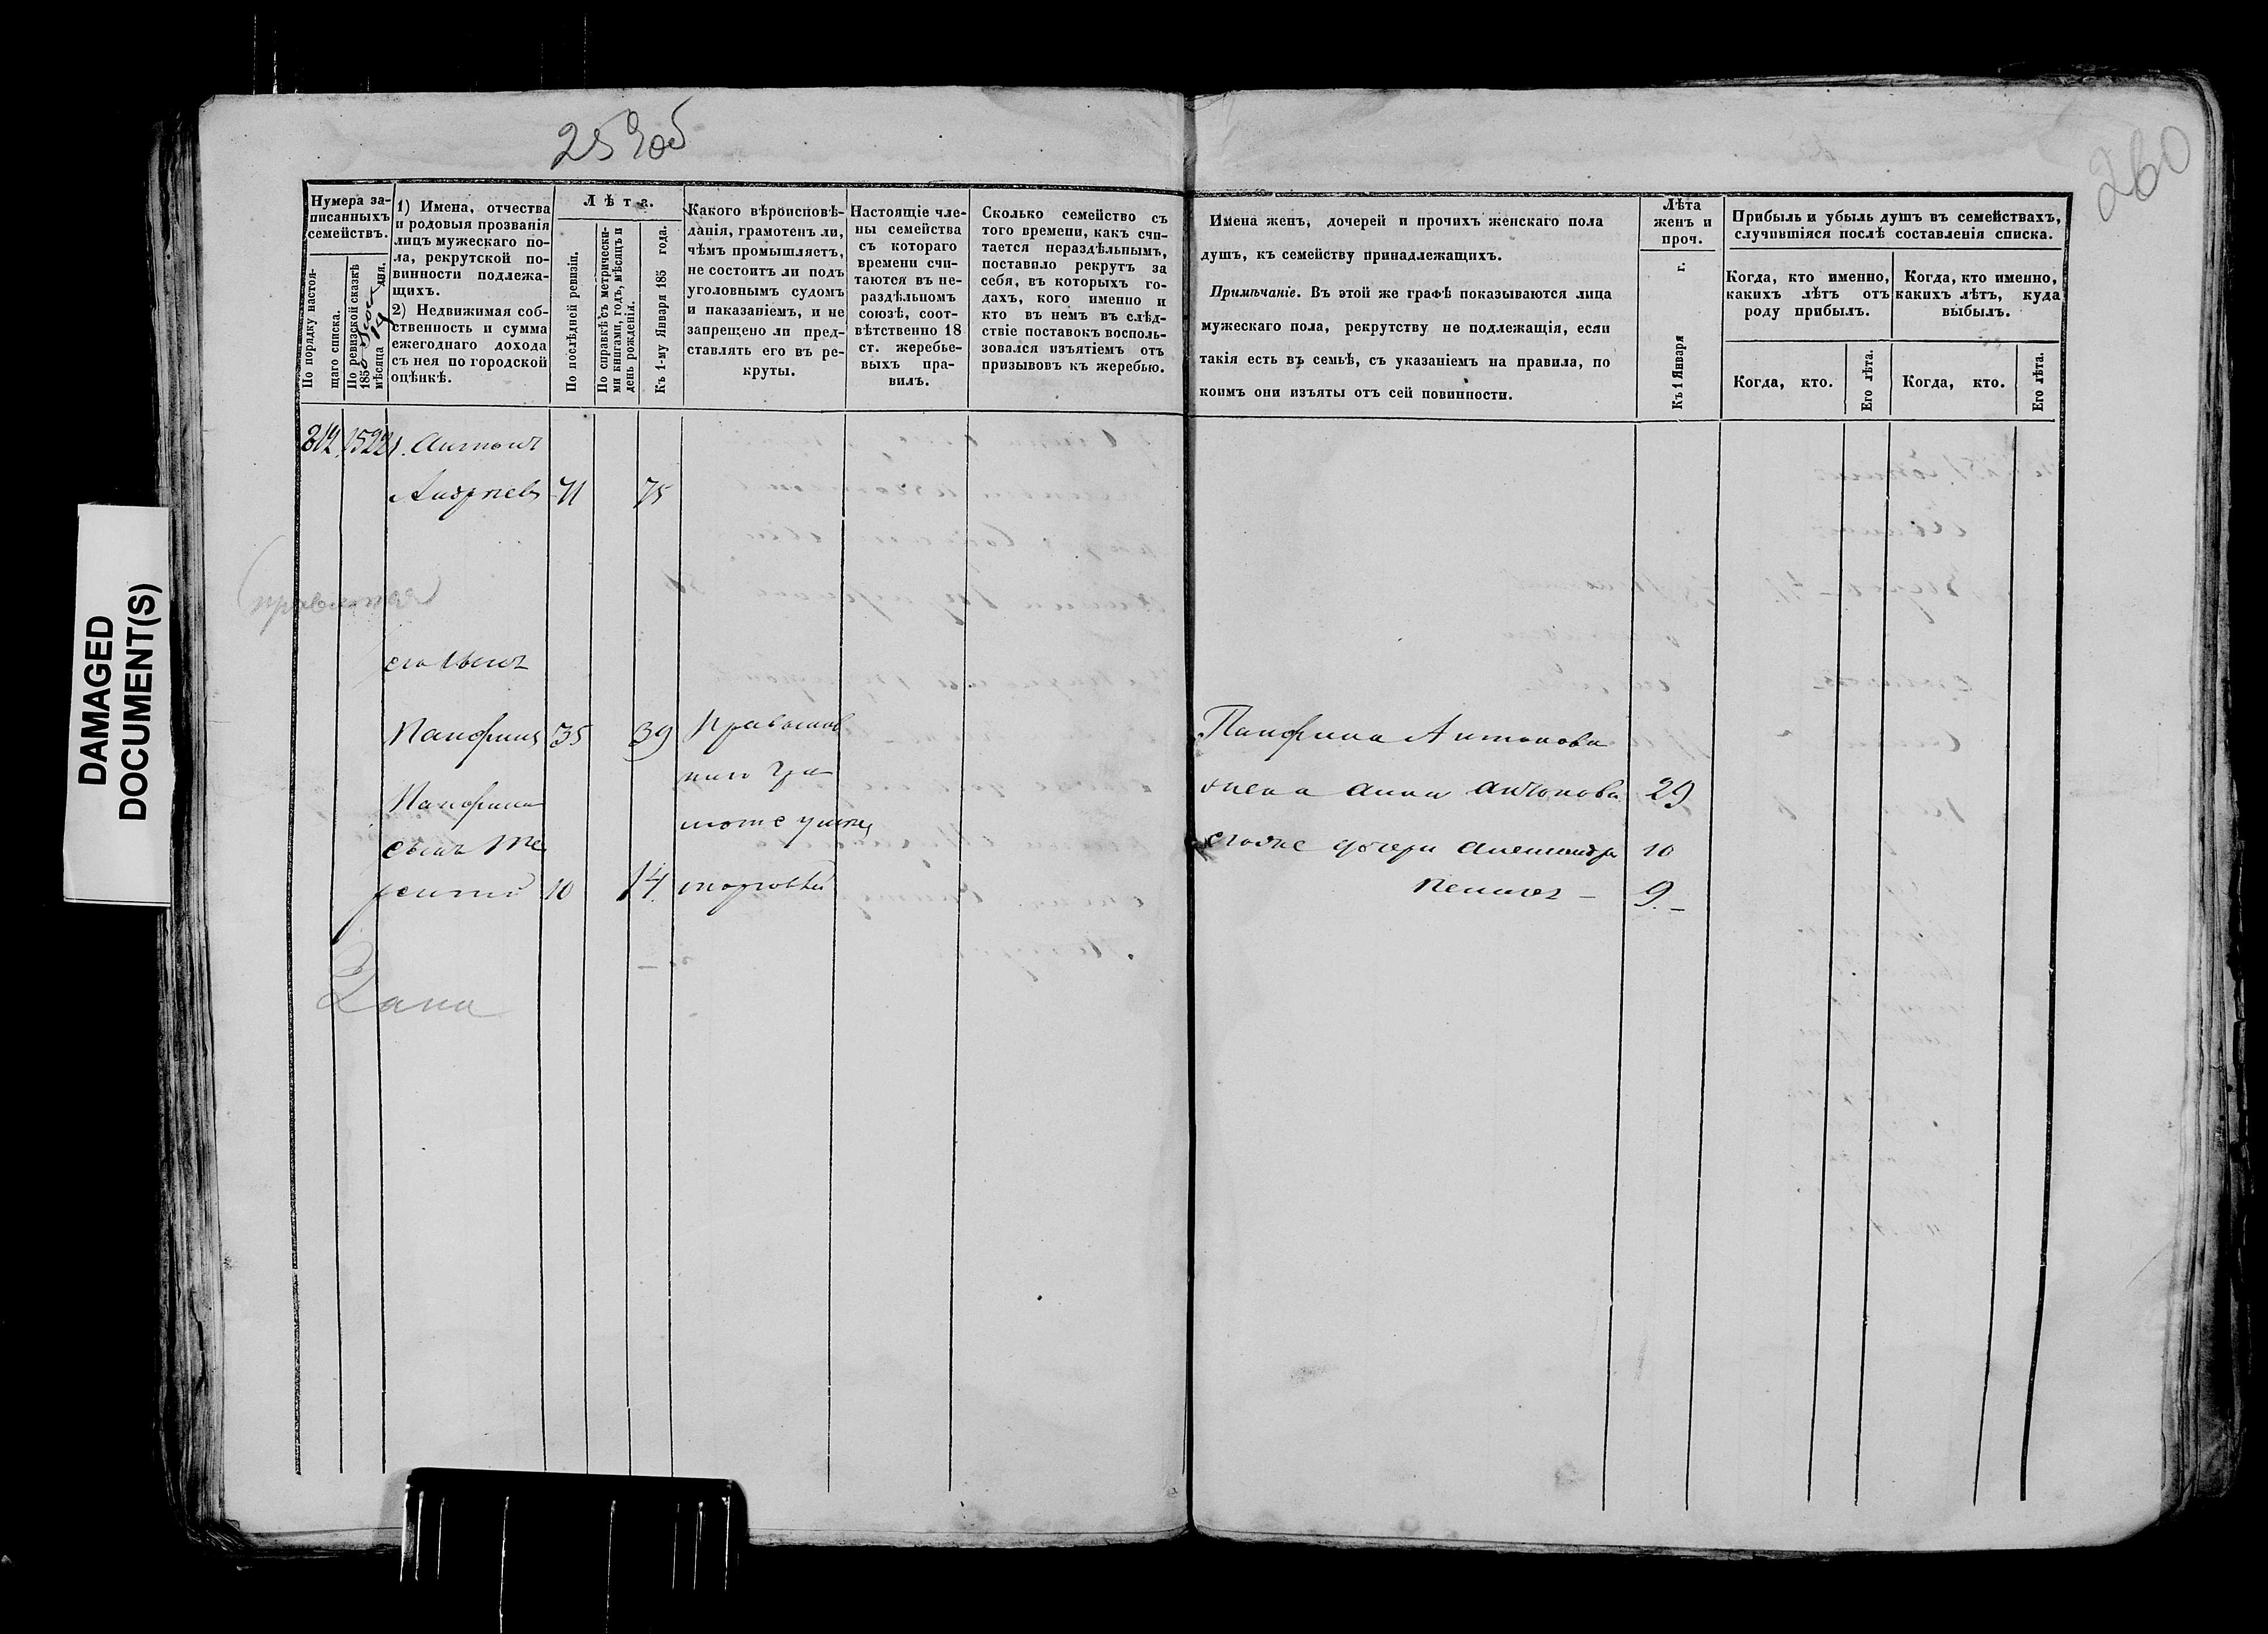 259об
260
DAMAGED
DOCUMENT(S)
Нумера за-
писанныхъ
семействъ.
По порядку настоя-
щаго списка.
По ревизской сказкѣ
1850
мѣсяца 19 дня.
1) Имена, отчества
и родовыя прозванія
лицъ мужескаго по-
ла, рекрутской по-
винности подлежа-
щихъ.
2) Недвижимая соб-
ственность и сумма
ежегоднаго дохода
съ нея по городской
оцѣнкѣ.
Лѣта.
По послѣдней ревизіи.
По справкѣ съ метрически-
ми книгами, годъ, мѣсяцъ и
день рожденія.
Къ 1-му Января 185 года.
Какого вѣроисповѣ-
данія, грамотенъ ли,
чѣмъ промышляетъ,
не состоитъ ли подъ
уголовнымъ судомъ
и наказаніемъ, и не
запрещено ли пред-
ставлять его въ ре-
круты.
Настоящіе чле-
ны семейства
съ котораго
времени счи-
таются въ не-
раздѣльномъ
союзѣ, соот-
вѣтственно 18
ст. жеребье-
выхъ пра-
вилъ.
Сколько семейство съ
того времени, какъ счи-
тается нераздѣльнымъ,
поставило рекрутъ за
себя, въ которыхъ го-
дахъ, кого именно и
кто въ немъ въ слѣд-
ствіе поставокъ восполь-
зовался изъятіемъ отъ
призывовъ къ жеребью.
Имена женъ, дочерей и прочихъ женскаго пола
душъ, къ семейству принадлежащихъ.
Примѣчаніе. Въ этой же графѣ показываются лица
мужескаго пола, рекрутству не подлежащія, если
такія есть въ семьѣ, съ указаніемъ на правила, по
коимъ они изъяты отъ сей повинности.
Лѣта
женъ и
проч.
Къ 1 Января г.
Прибыль и убыль душъ въ семействахъ,
случившіяся послѣ составленія списка.
Когда, кто именно,
какихъ лѣтъ отъ
роду прибылъ.
Когда, кто именно,
какихъ лѣтъ, куда
выбылъ.
Когда, кто.
Его лѣта.
Когда, кто.
Его лѣта.
812 1522 1. Антонъ
Андреевъ 71 75
его сынъ
Панфилъ 35 39 Православ
наго гра
Панфила
сынъ Те
моте умѣ
рентій 10 14 торговлей
Панфила Антонова
жена Анна Антонова 29
его же дочери Александра 10
Пелагея — 9